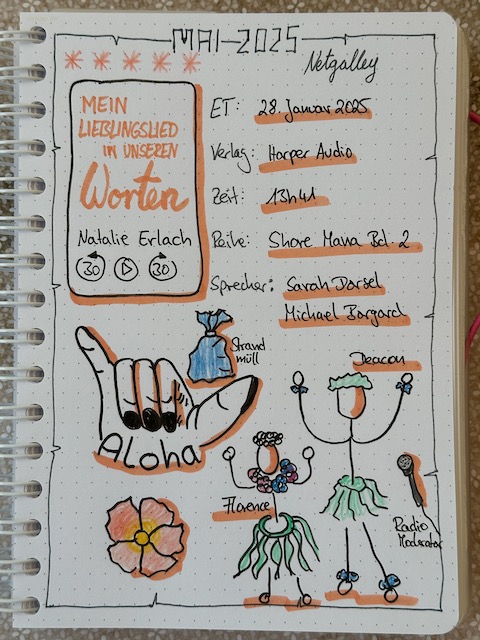 MAI-2025
Netzgalley
MEIN
LIEBLINGSLIED
IN UNSEREN
Worten
Natalie Erlach
30 30
ET: 28. Januar 2025
Verlag: Harper Audio
Zeit: 13h41
Reihe: Shore Mana Bd. 2
Sprecher: Sarah Dorsel
Michael Borgard
Strand
müll
Deacon
Aloha
Florence
Radio
Moderator